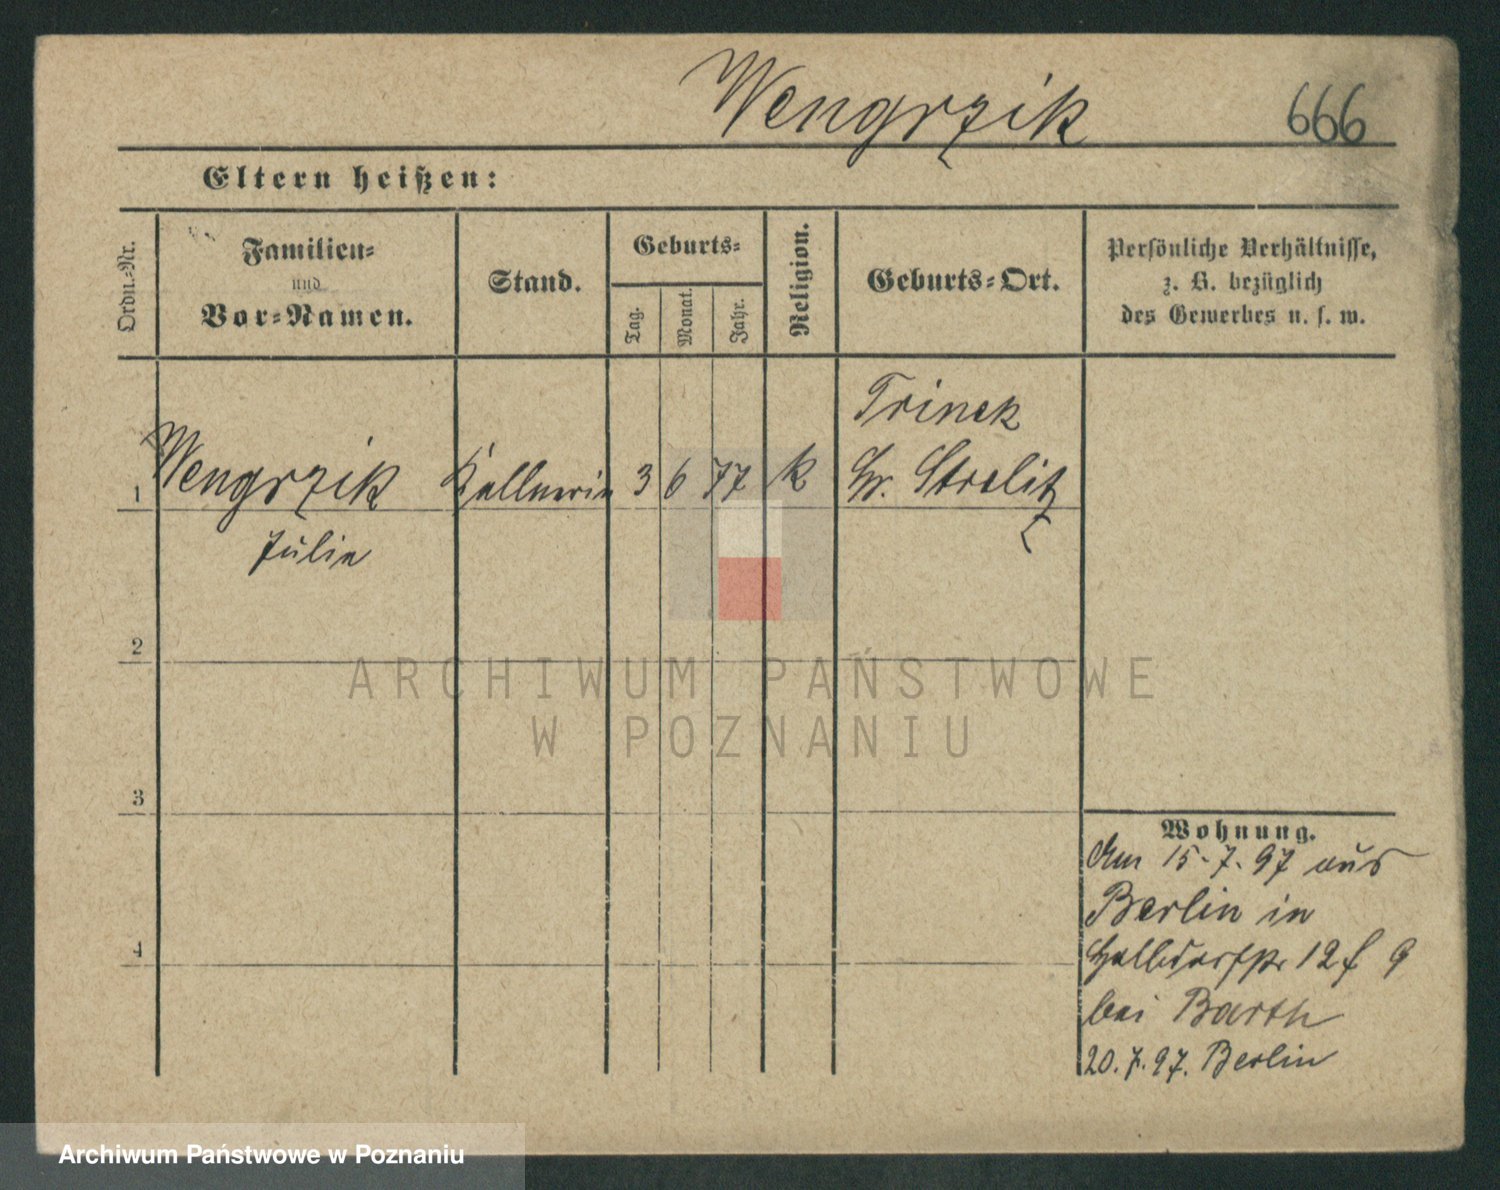 Wengrzik 666
Eltern heißen:
Ordn.-Nr.
Familien-
und
Vor-Namen.
Stand.
Geburts-
Tag.
Monat.
Jahr.
Religion.
Geburts-Ort.
Persönliche Verhältnisse,
z. B. bezüglich
des Gewerbes u. s. w.
Trinek
1 Wengrzik Kellnerin 3 6 77 k Gr. Strelitz
Julie
2
3
4
Wohnung.
Am 15.7.97 aus
Berlin in
Halbdorfstr 12 f 9
bei Barth
20.7.97. Berlin
ARCHIWUM PAŃSTWOWE
W POZNANIU
Archiwum Państwowe w Poznaniu